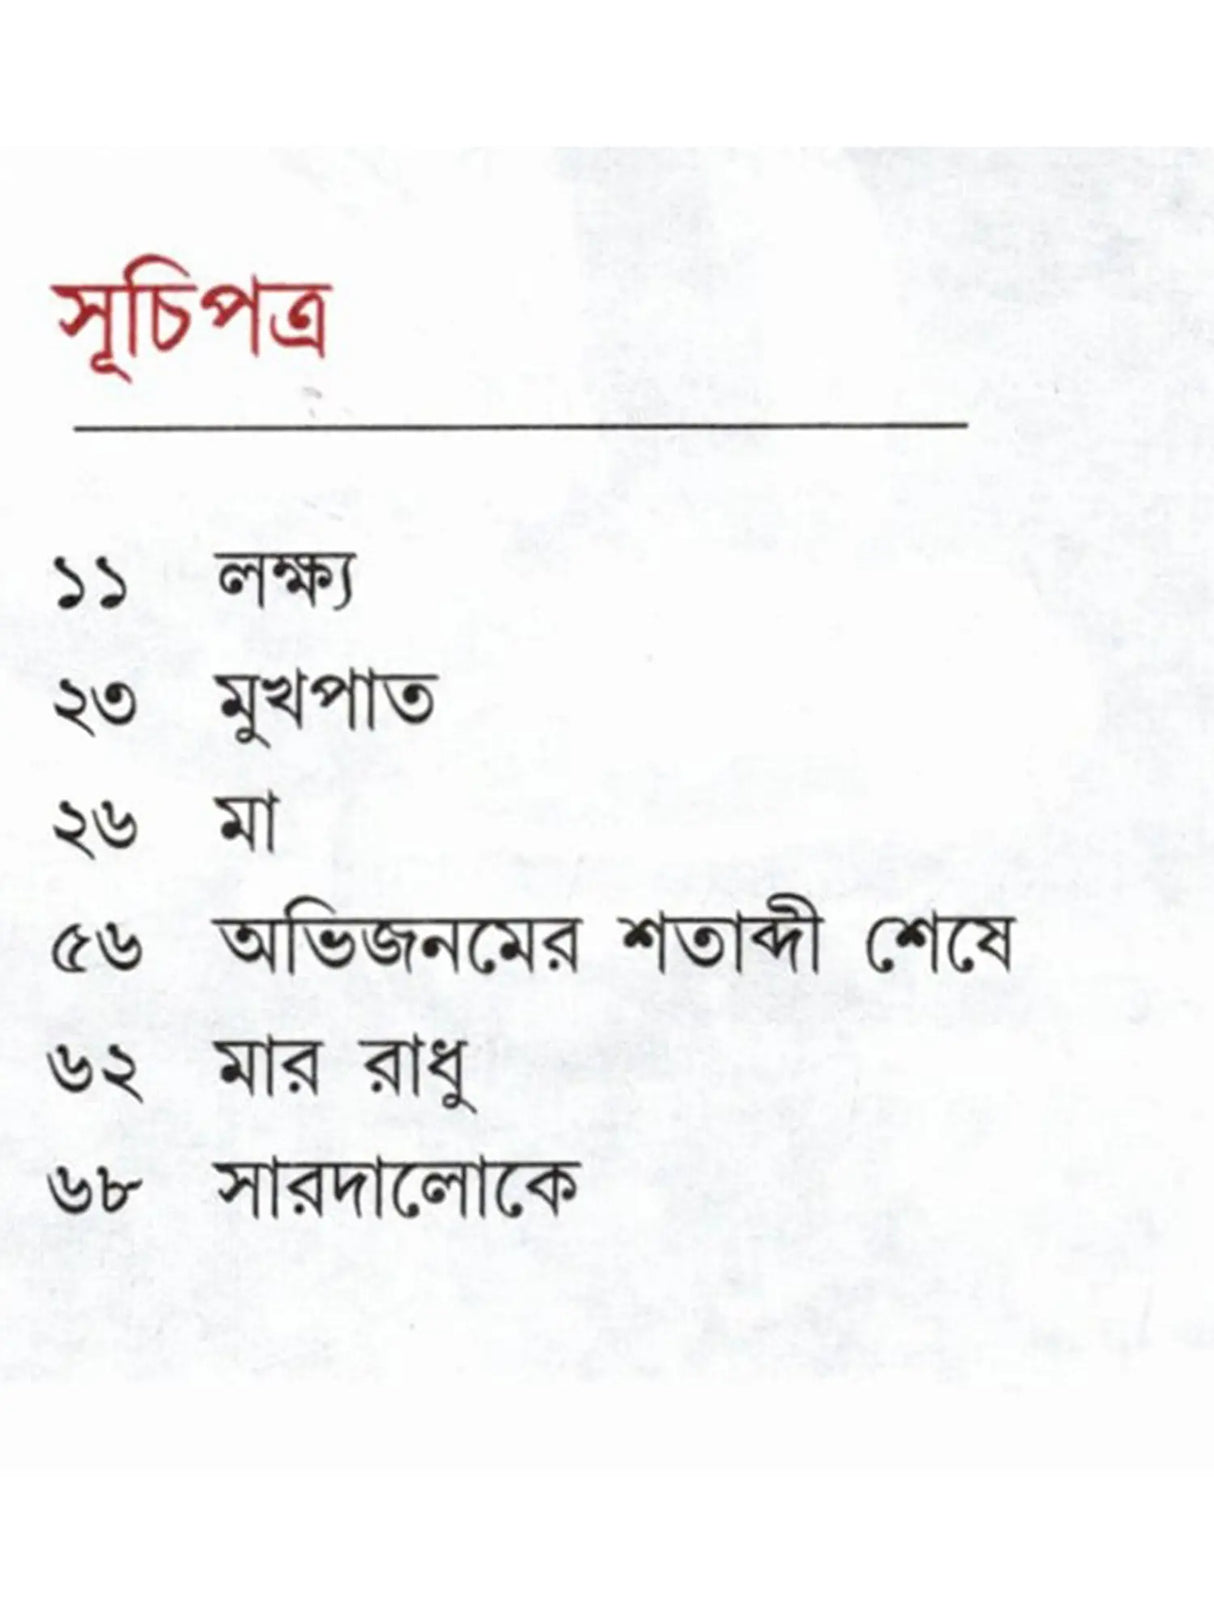 সূচিপত্র
১১ লক্ষ্য
২৩ মুখপাত
২৬ মা
৫৬ অভিজনমের শতাব্দী শেষে
৬২ মার রাধু
৬৮ সারদালোকে